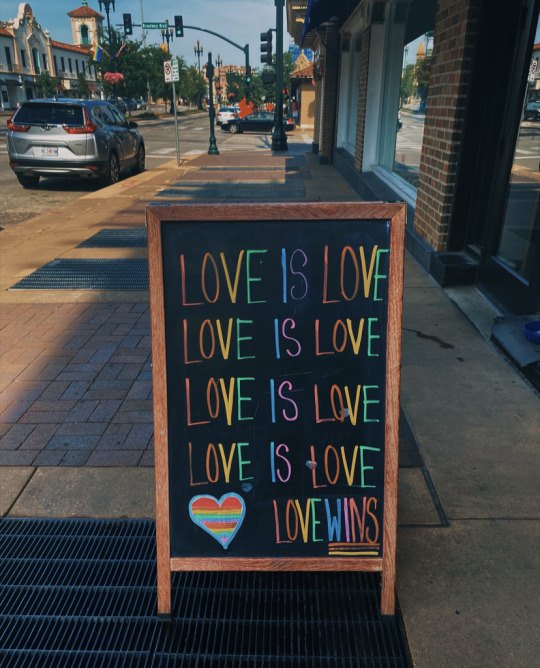 LOVE IS LOVE
LOVE IS LOVE
LOVE IS LOVE
LOVE IS LOVE
LOVE WINS